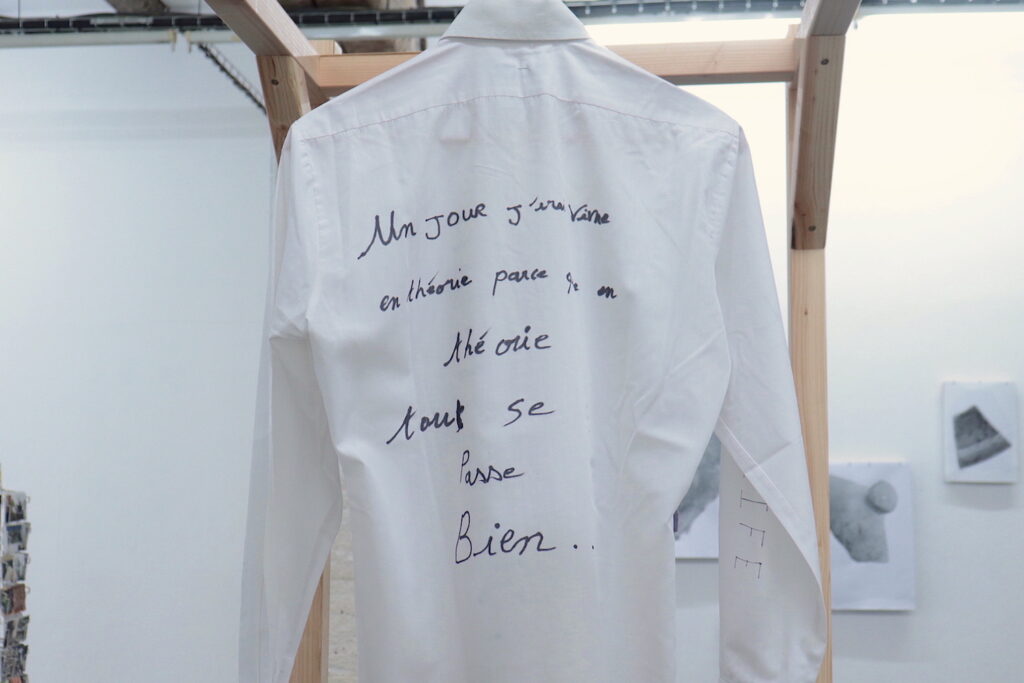 Un jour j'irai vivre
en théorie parce qe en
théorie
tout se
Passe
Bien..
IFE